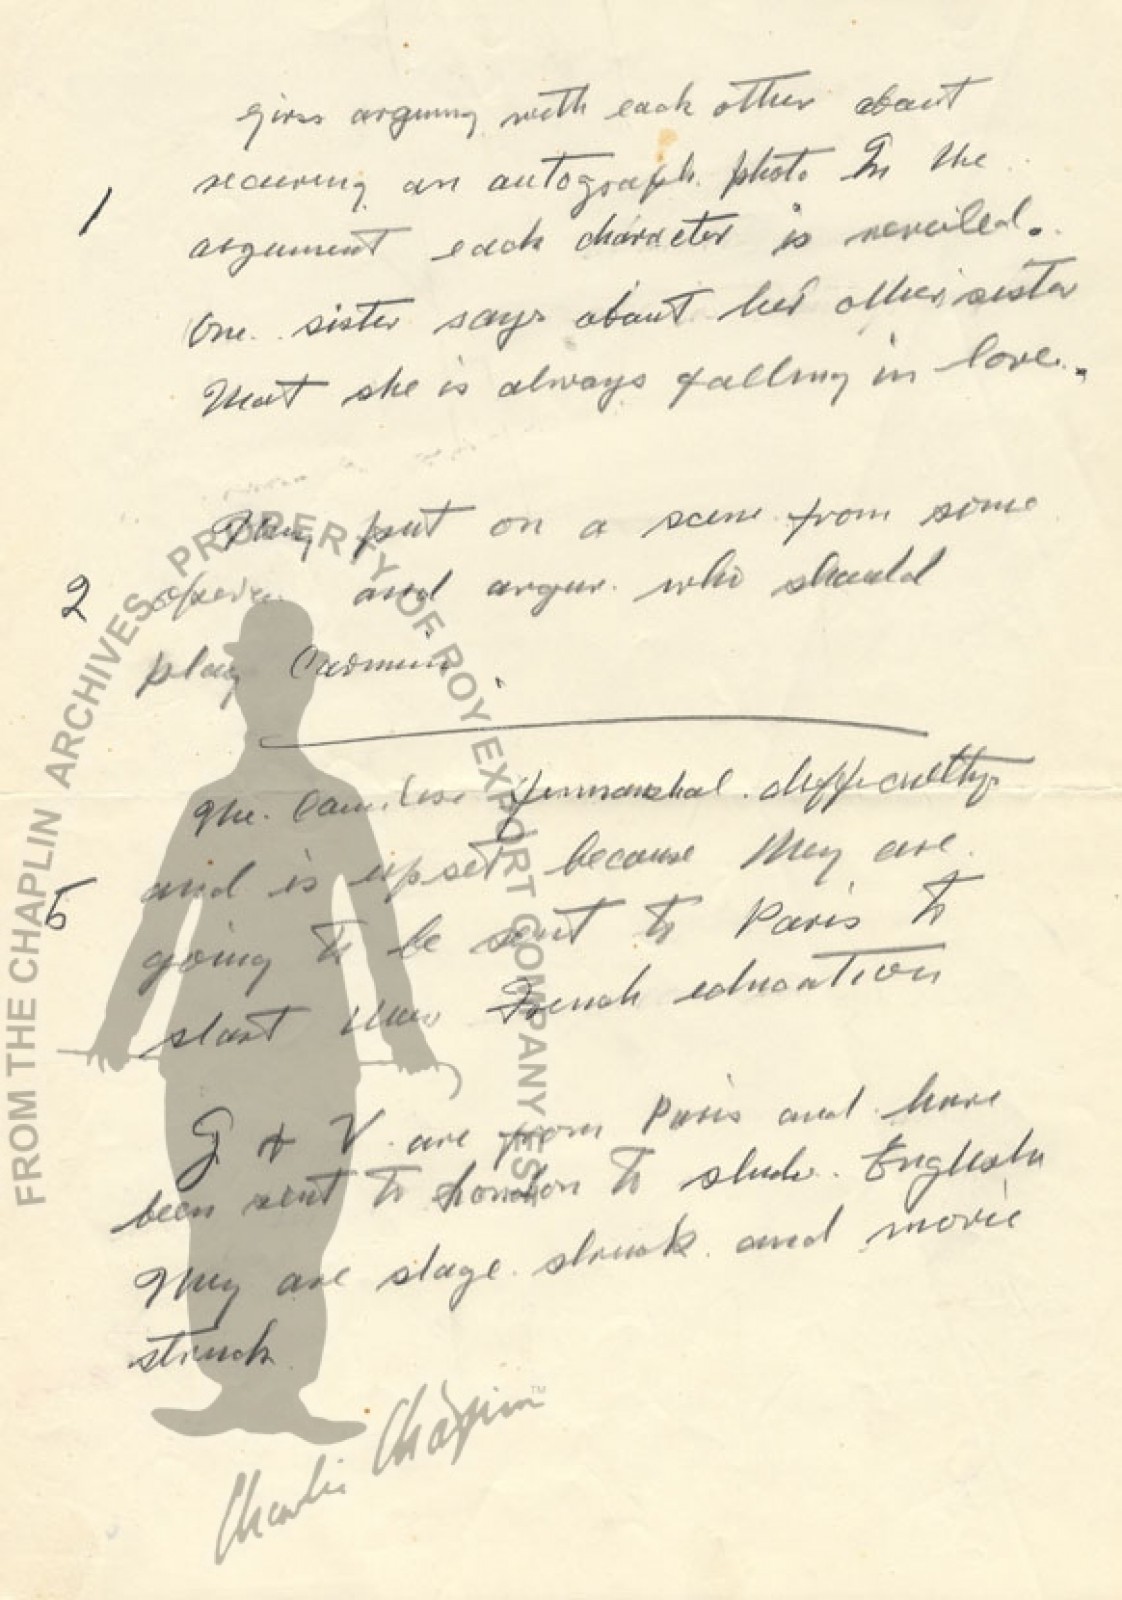 girls arguing with each other about
securing an autograph photo In the
1 argument each character is reveiled.
One sister says about her other sister
that she is always falling in love.
They put on a scene from some
2 opera and argue who should
play Carmin
The financhal difficulty
and is upset because they are
5 going to be sent to Paris to
start their French education
G & V are from Paris and have
been sent to London to stude English
They are stage struck and movie
struck
FROM THE CHAPLIN ARCHIVES, PROPERTY OF ROY EXPORT COMPANY EST
Charlie Chaplin™